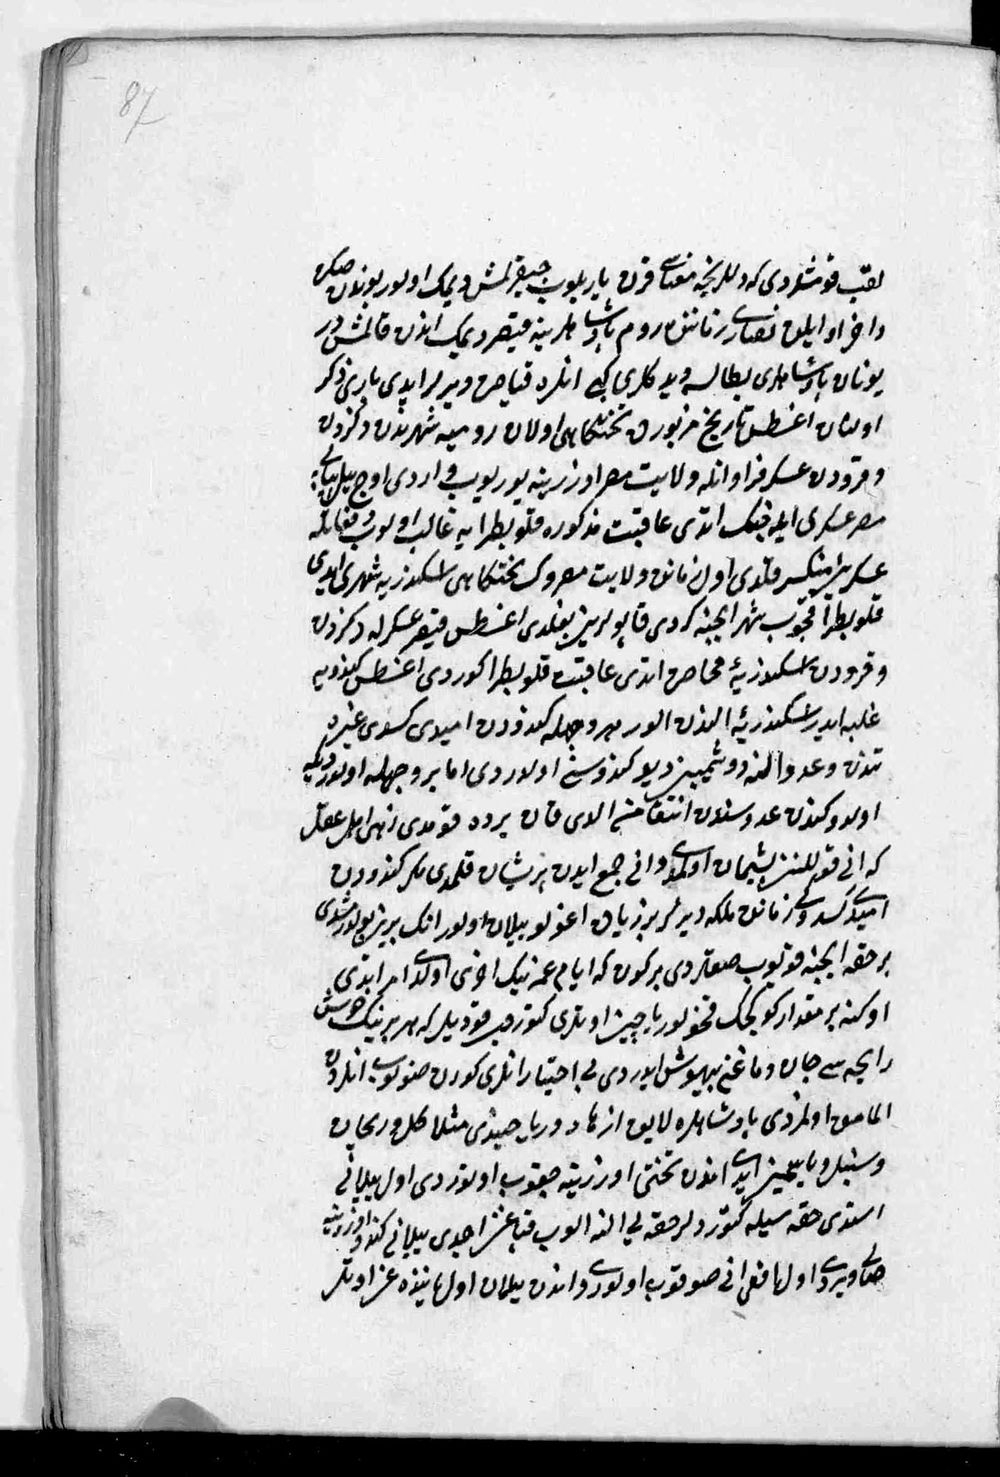 87
لقب قومشلردی كه دللرنجه معناسی قرن یاریلوب چیقرلمش دیمك اولور بوندن صكره
واخر اوایلن نصارا زماننده روم پادشاهلرینه قیصر دیمك اندن قالمشدر
یونان پادشاهلری بطالسه دیدكلری كبی انلره قیاصره دیرلر ایدی باری ذكر
اولنان اغسطس تاریخ مزبورده تختكاهی اولان رومیه شهرندن دكزدن
و قرودن عسكر فراوانله ولایت مصر اوزرینه یوریوب واردی اوچ ییل
مصر عسكری ایله جنك اتدی عاقبت مذكوره قلوبطرایه غالب اولوب
عسكرین منكسر قلدی اول زمانده ولایت مصرك تختكاهی اسكندریه شهری ایدی
قلوبطرا قچوب شهر ایچنه كردی قاپولرین بغلدی اغسطس قیصر عسكرله دكزدن
و قرودن اسكندریه‌ٔ محاصره اتدی عاقبت قلوبطرا كوردی اغسطس كندویه
غلبه ایدر اسكندریه‌ٔ الندن الور هر وجهله كندودن امیدی كسدی غیره
تندن و عدو النه دوشمیین دیو كندوسنی اولدردی اما بر وجهله اولدی كه
اولدوكندن عدوسندن انتقامنی الدی قان یرده قومدی زهی اهل عقل
كه انی قوللننر پشیمان اولمدی و انی جمع ایدن پریشان قلمدی مكر كندودن
امیدی كسدوكی زمانده ملكه دیرلر بر زیاده اغولو ییلان اولور انك برین بولدرمشدی
بر حقه ایچنه قویوب صقلردی بر كون كه ایام عمرینك اخری اولدی امر ایتدی
اوكنه بر مقدار كوكچك قخولور یاحین اوتلری كتوروب قودیلر كه هر برینك خوش
رایحه سی جان و دماغی بیهوش ایدردی بی اختیار انلری كورن صنوكوب انلردن
المامق اولمزدی پادشاهلره لایق ازهار و ریاحیندی مثلا كل و ریحان
و سنبل و یاسمین ایدی اندن تختی اوزرینه چقوب اوتوردی اول ییلانی
استدی حقه سیله كتوردیلر حقه یی النه الوب قپاغن اچدی ییلانی كندو اوزرینه
صالی ویردی اول افعی انی صوقوب اولدردی و اندن ییلان اول تازه اوتلر